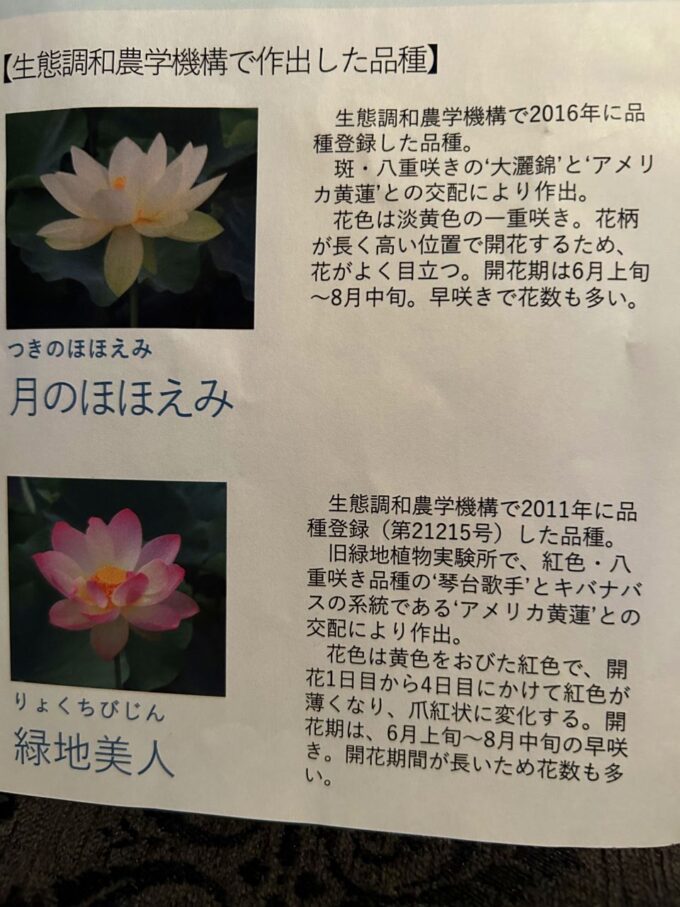 【生態調和農学機構で作出した品種】
生態調和農学機構で2016年に品
種登録した品種。
斑・八重咲きの‘大灑錦’と‘アメリ
カ黄蓮’との交配により作出。
花色は淡黄色の一重咲き。花柄
が長く高い位置で開花するため、
花がよく目立つ。開花期は6月上旬
～8月中旬。早咲きで花数も多い。
つきのほほえみ
月のほほえみ
生態調和農学機構で2011年に品
種登録（第21215号）した品種。
旧緑地植物実験所で、紅色・八
重咲き品種の‘琴台歌手’とキバナバ
スの系統である‘アメリカ黄蓮’との
交配により作出。
花色は黄色をおびた紅色で、開
花1日目から4日目にかけて紅色が
薄くなり、爪紅状に変化する。開
花期は、6月上旬～8月中旬の早咲
き。開花期間が長いため花数も多
い。
りょくちびじん
緑地美人